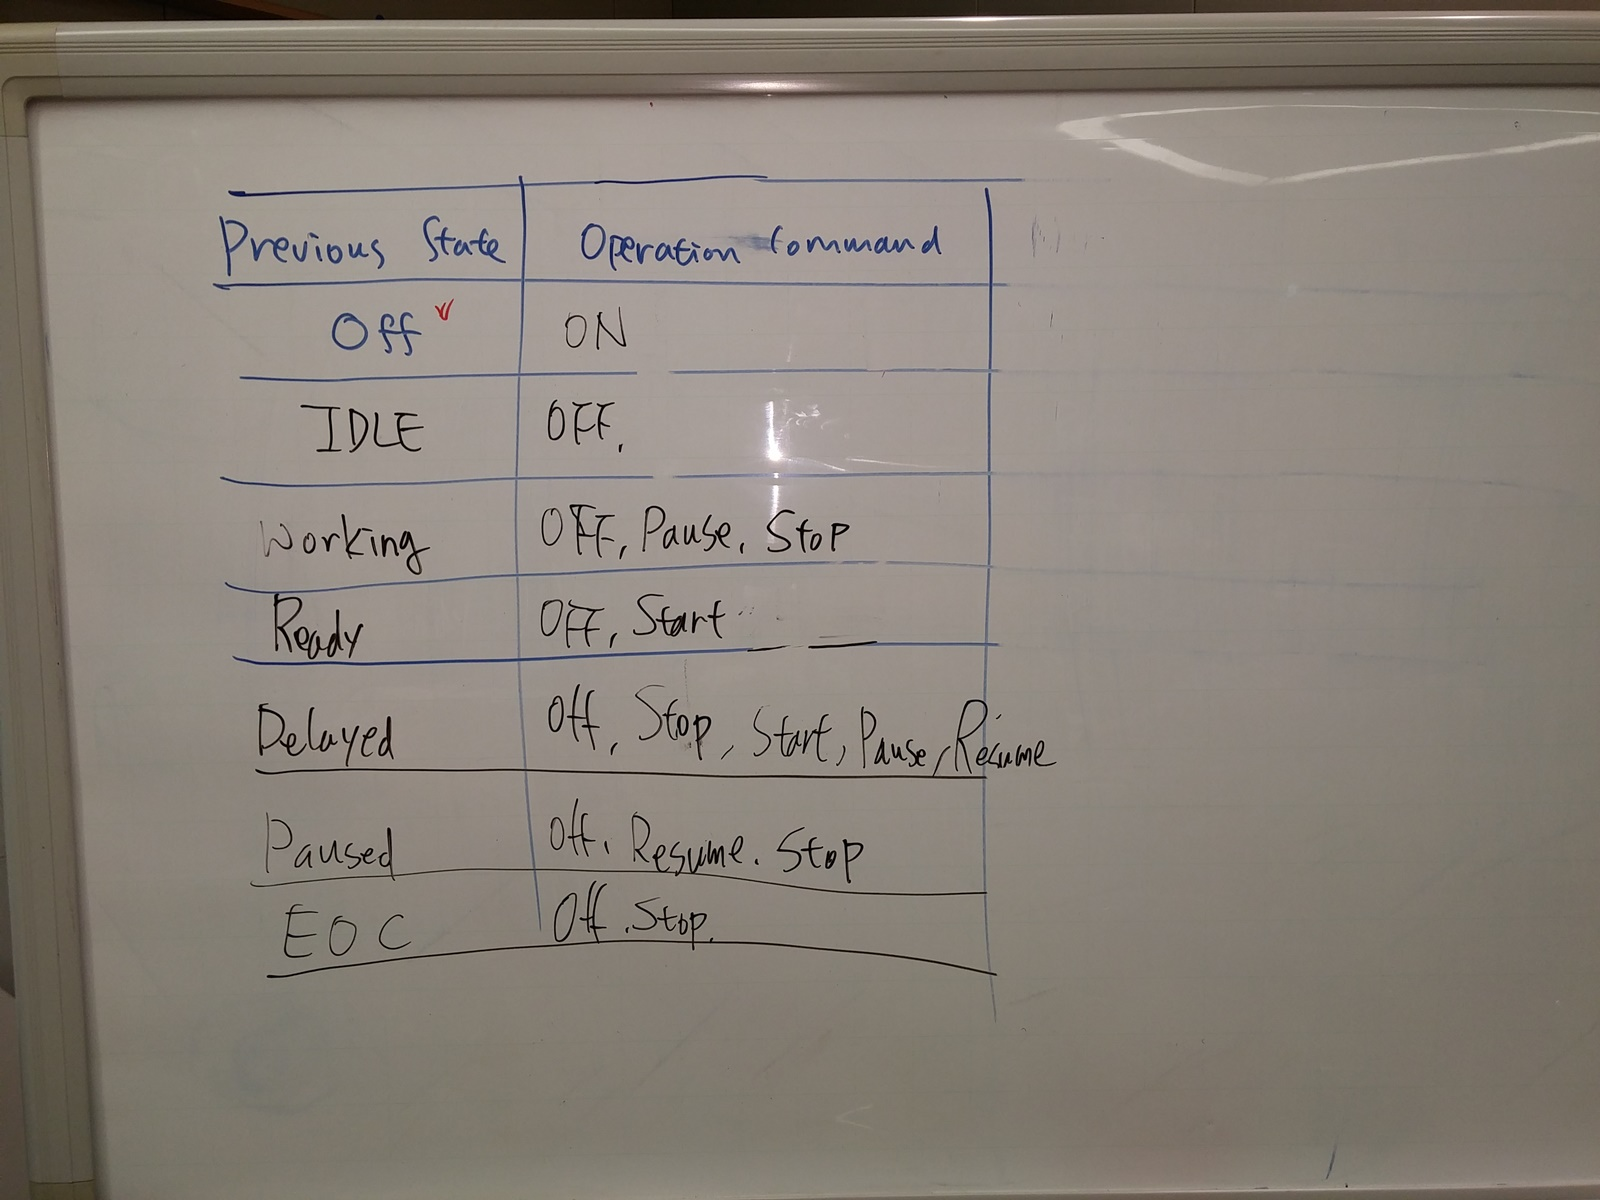 Previous State Operation Command
Off ON
IDLE OFF.
Working OFF, Pause, Stop
Ready OFF, Start
Delayed Off, Stop, Start, Pause, Resume
Paused Off, Resume. Stop
EOC Off .Stop.